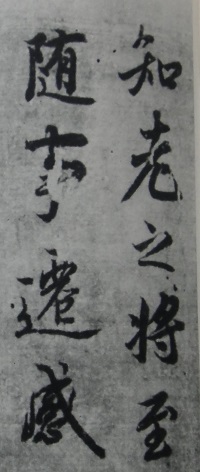 知老之將至
隨事遷感